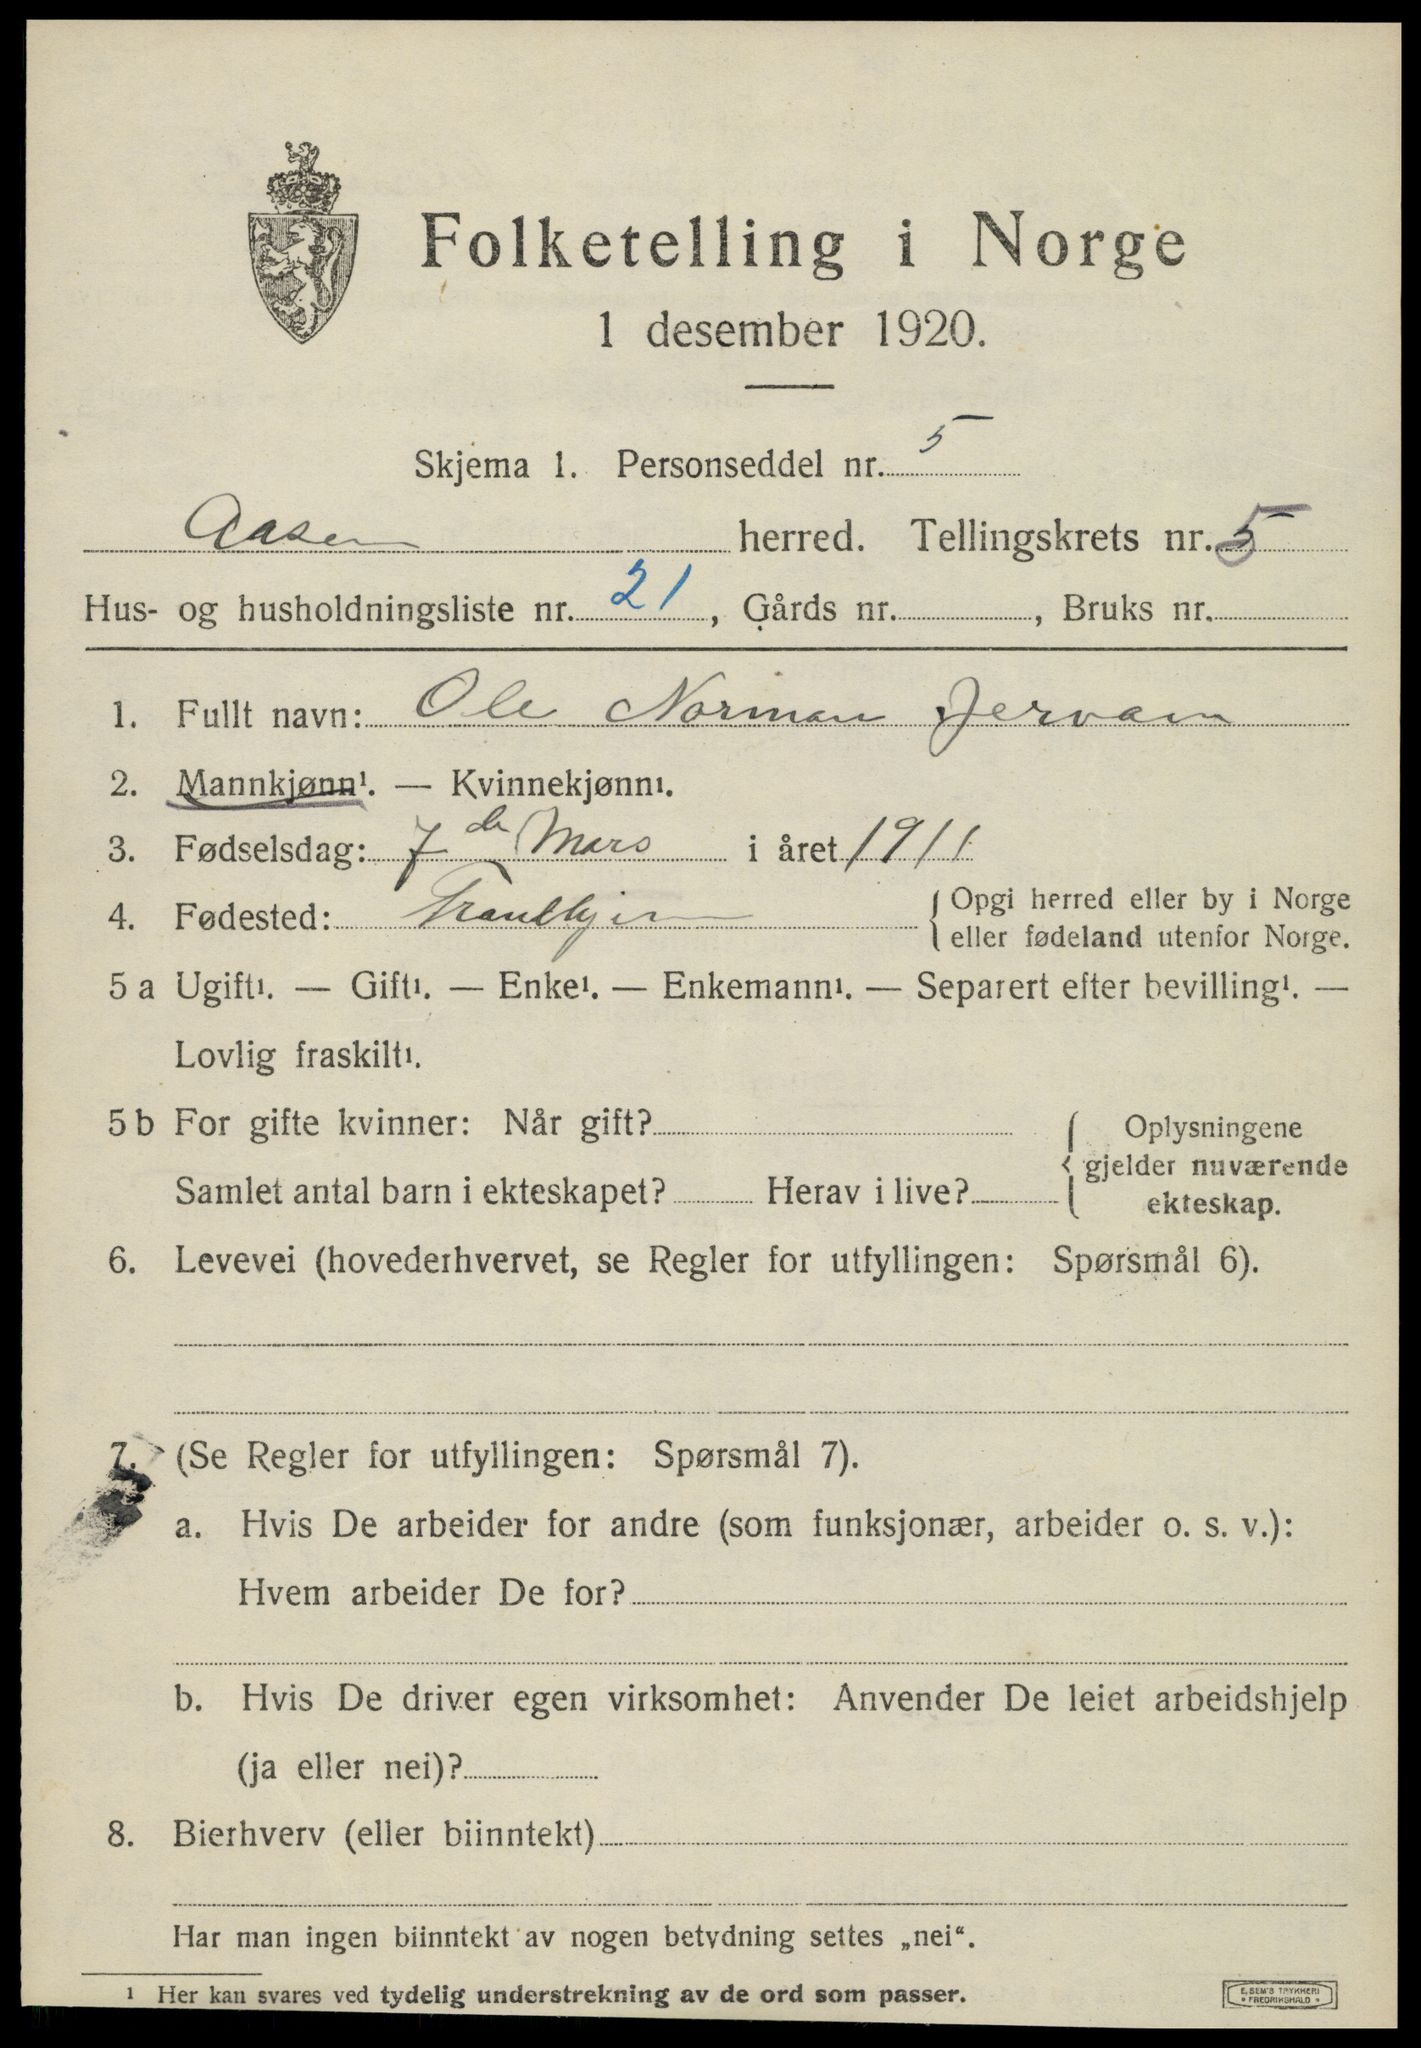 Folketelling i Norge
1 desember 1920.
Skjema 1. Personseddel nr. 5
Aasen herred. Tellingskrets nr. 5
Hus- og husholdningsliste nr. 21, Gårds nr. , Bruks nr.
1. Fullt navn: Ole Norman Jervan
2. Mannkjønn¹. — Kvinnekjønn¹.
3. Fødselsdag: 7de Mars i året 1911
4. Fødested: Trondhjem { Opgi herred eller by i Norge
eller fødeland utenfor Norge.
5 a Ugift¹. — Gift¹. — Enke¹. — Enkemann¹. — Separert efter bevilling¹. —
Lovlig fraskilt¹.
5 b For gifte kvinner: Når gift? { Oplysningene
gjelder nuværende
Samlet antal barn i ekteskapet? Herav i live? ekteskap.
6. Levevei (hovederhvervet, se Regler for utfyllingen: Spørsmål 6).
7. (Se Regler for utfyllingen: Spørsmål 7).
a. Hvis De arbeider for andre (som funksjonær, arbeider o. s. v.):
Hvem arbeider De for?
b. Hvis De driver egen virksomhet: Anvender De leiet arbeidshjelp
(ja eller nei)?
8. Bierhverv (eller biinntekt)
Har man ingen biinntekt av nogen betydning settes „nei“.
¹ Her kan svares ved tydelig understrekning av de ord som passer.
E. SEM'S TRYKKERI
FREDRIKSHALD